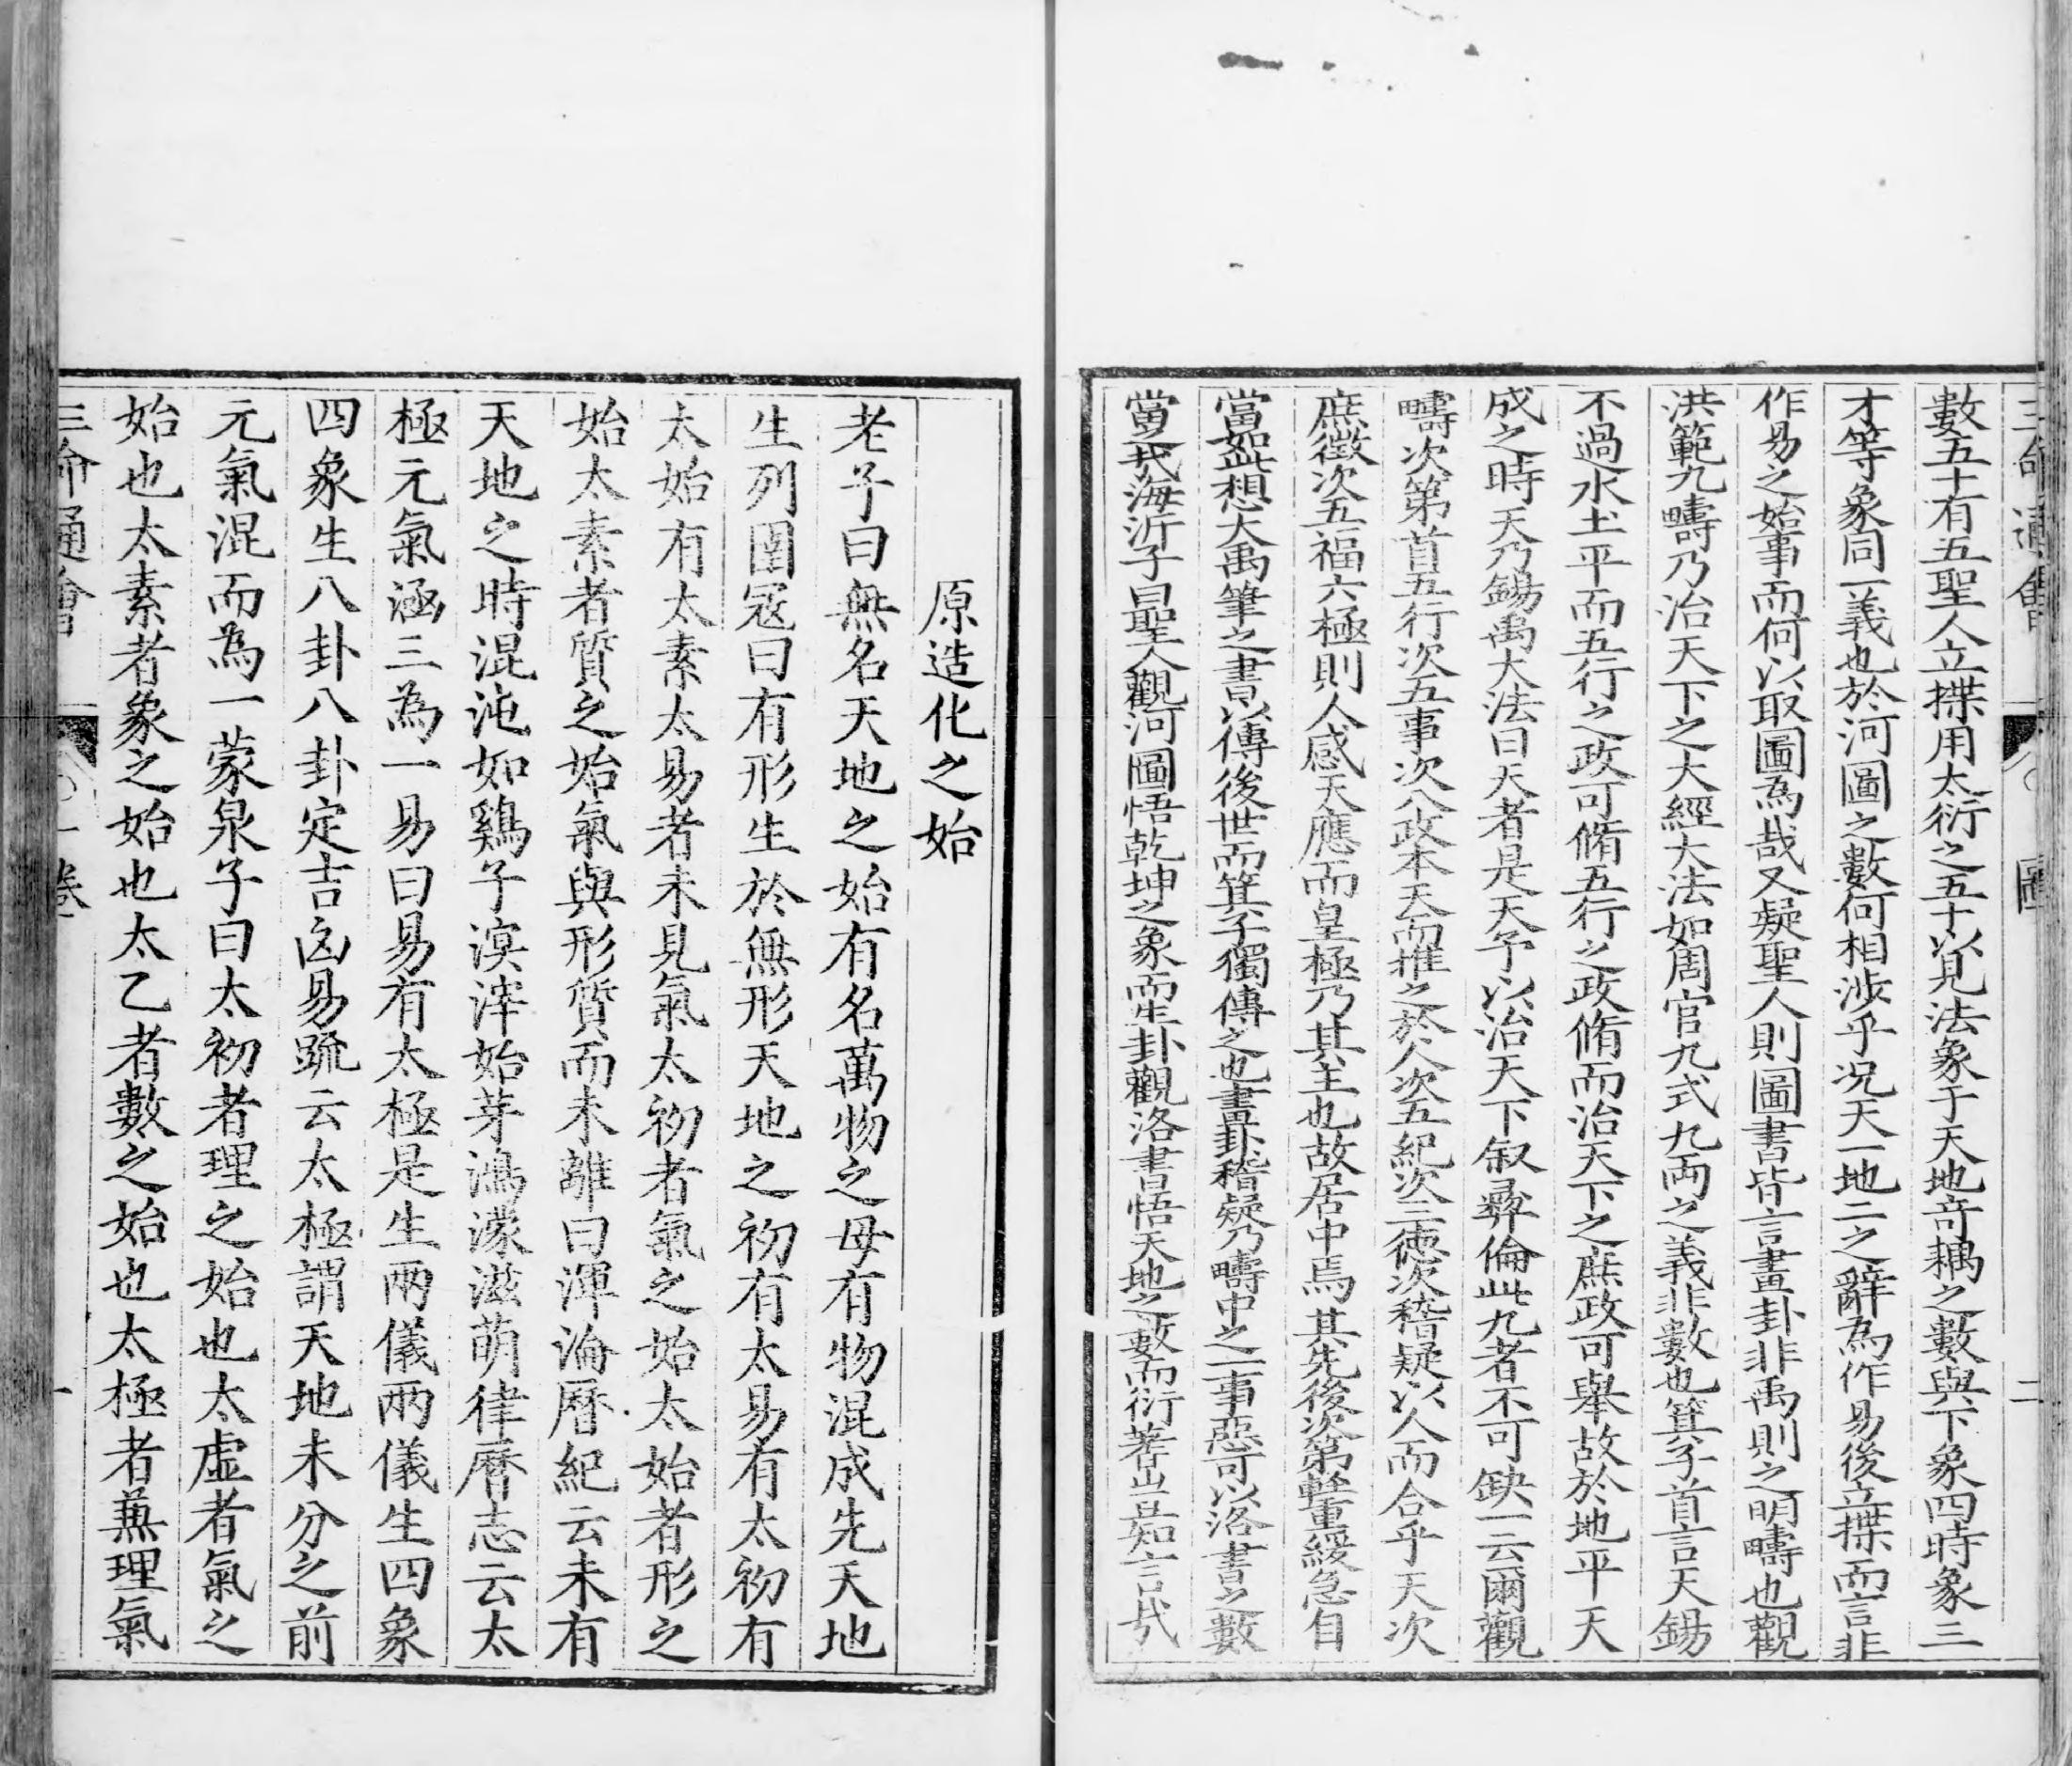 三命通會
圖
二
數五十有五聖人立揲用太衍之五十以見法象于天地奇耦之數與下象四時象三
才等象同一義也於河圖之數何相涉乎况天一地二之辭為作易後立揲而言非
作易之始事而何以取圖為哉又疑聖人則圖書皆言畫卦非禹則之明疇也觀
洪範九疇乃治天下之大經大法如周官九式九兩之義非數也箕子首言天錫
不過水土平而五行之政可脩五行之政脩而治天下之庶政可舉故於地平天
成之時天乃錫禹大法曰天者是天予以治天下叙彝倫此九者不可缺一云爾觀
疇次第首五行次五事次八政本天而推之於人次五紀次三德次稽疑以人而合乎天次
庶徵次五福六極則人感天應而皇極乃其主也故居中焉其先後次第輕重緩急自
當如此想大禹筆之書以傳後世而箕子獨傳之也畫卦稽疑乃疇中之一事惡可以洛書之數
當之我海沂子曰聖人觀河圖悟乾坤之象而生卦觀洛書悟天地之數而衍蓍豈知言哉
原造化之始
老子曰無名天地之始有名萬物之母有物混成先天地
生列圄寇曰有形生於無形天地之初有太易有太初有
太始有太素太易者未見氣太初者氣之始太始者形之
始太素者質之始氣與形質而未離曰渾淪曆紀云未有
天地之時混沌如鷄子溟涬始芽鴻濛滋萌律曆志云太
極元氣涵三為一易曰易有太極是生兩儀兩儀生四象
四象生八卦八卦定吉凶易疏云太極謂天地未分之前
元氣混而為一蒙泉子曰太初者理之始也太虛者氣之
始也太素者象之始也太乙者數之始也太極者兼理氣
三命通會
一卷
一